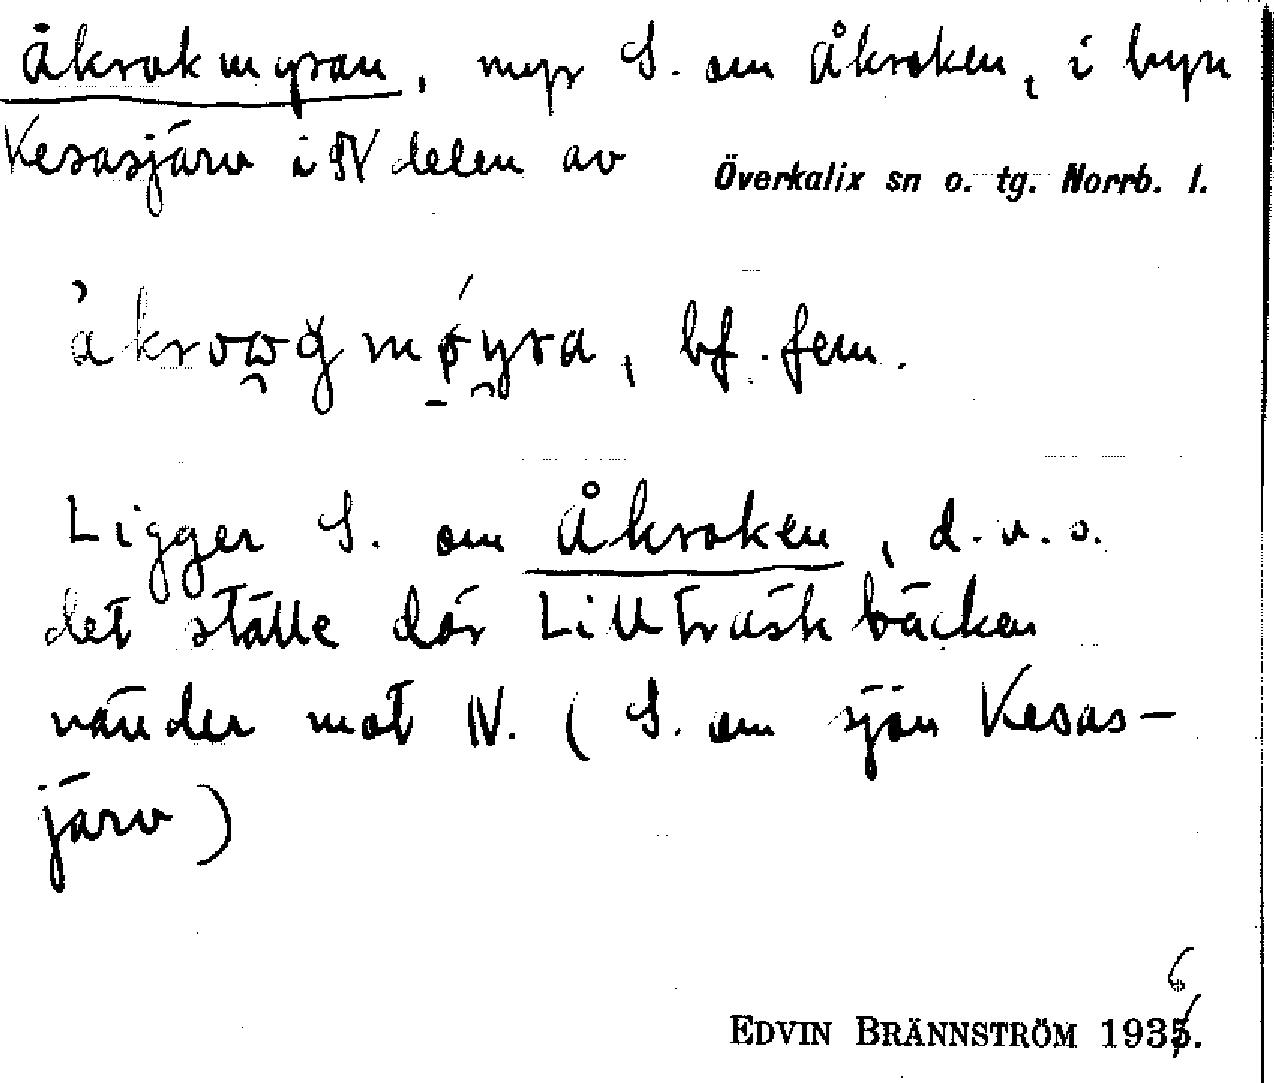 Åkrokmyran, myr S. om Åkroken, i byn
Kesasjärv i N delen av Överkalix sn o. tg. Norrb. l.
bf. fem.
Ligger S. om Åkroken, d.v.s.
det ställe där Lillträskbäcken
vänder mot N. (S. om sjön Kesas-
järv)
6
EDVIN BRÄNNSTRÖM 1935.